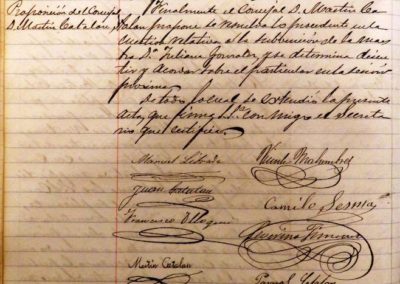 Proposición del Concejal
D. Martín Catalán
Finalmente el Concejal D. Martín Ca-
talan propone se resuelva lo procedente en la
cuestión relativa a la subvención de la maes-
tra Dª Juliana Gonzalez y se determina discu-
tir y acordar sobre el particular en la sesión
próxima.
De todo lo cual se extendió la presente
acta, que firmó Sª conmigo el Secreta
rio que certifico.
Manuel
Juan Catalan
Camilo Sesma
Francisco Villagrasa
Martin Catalan